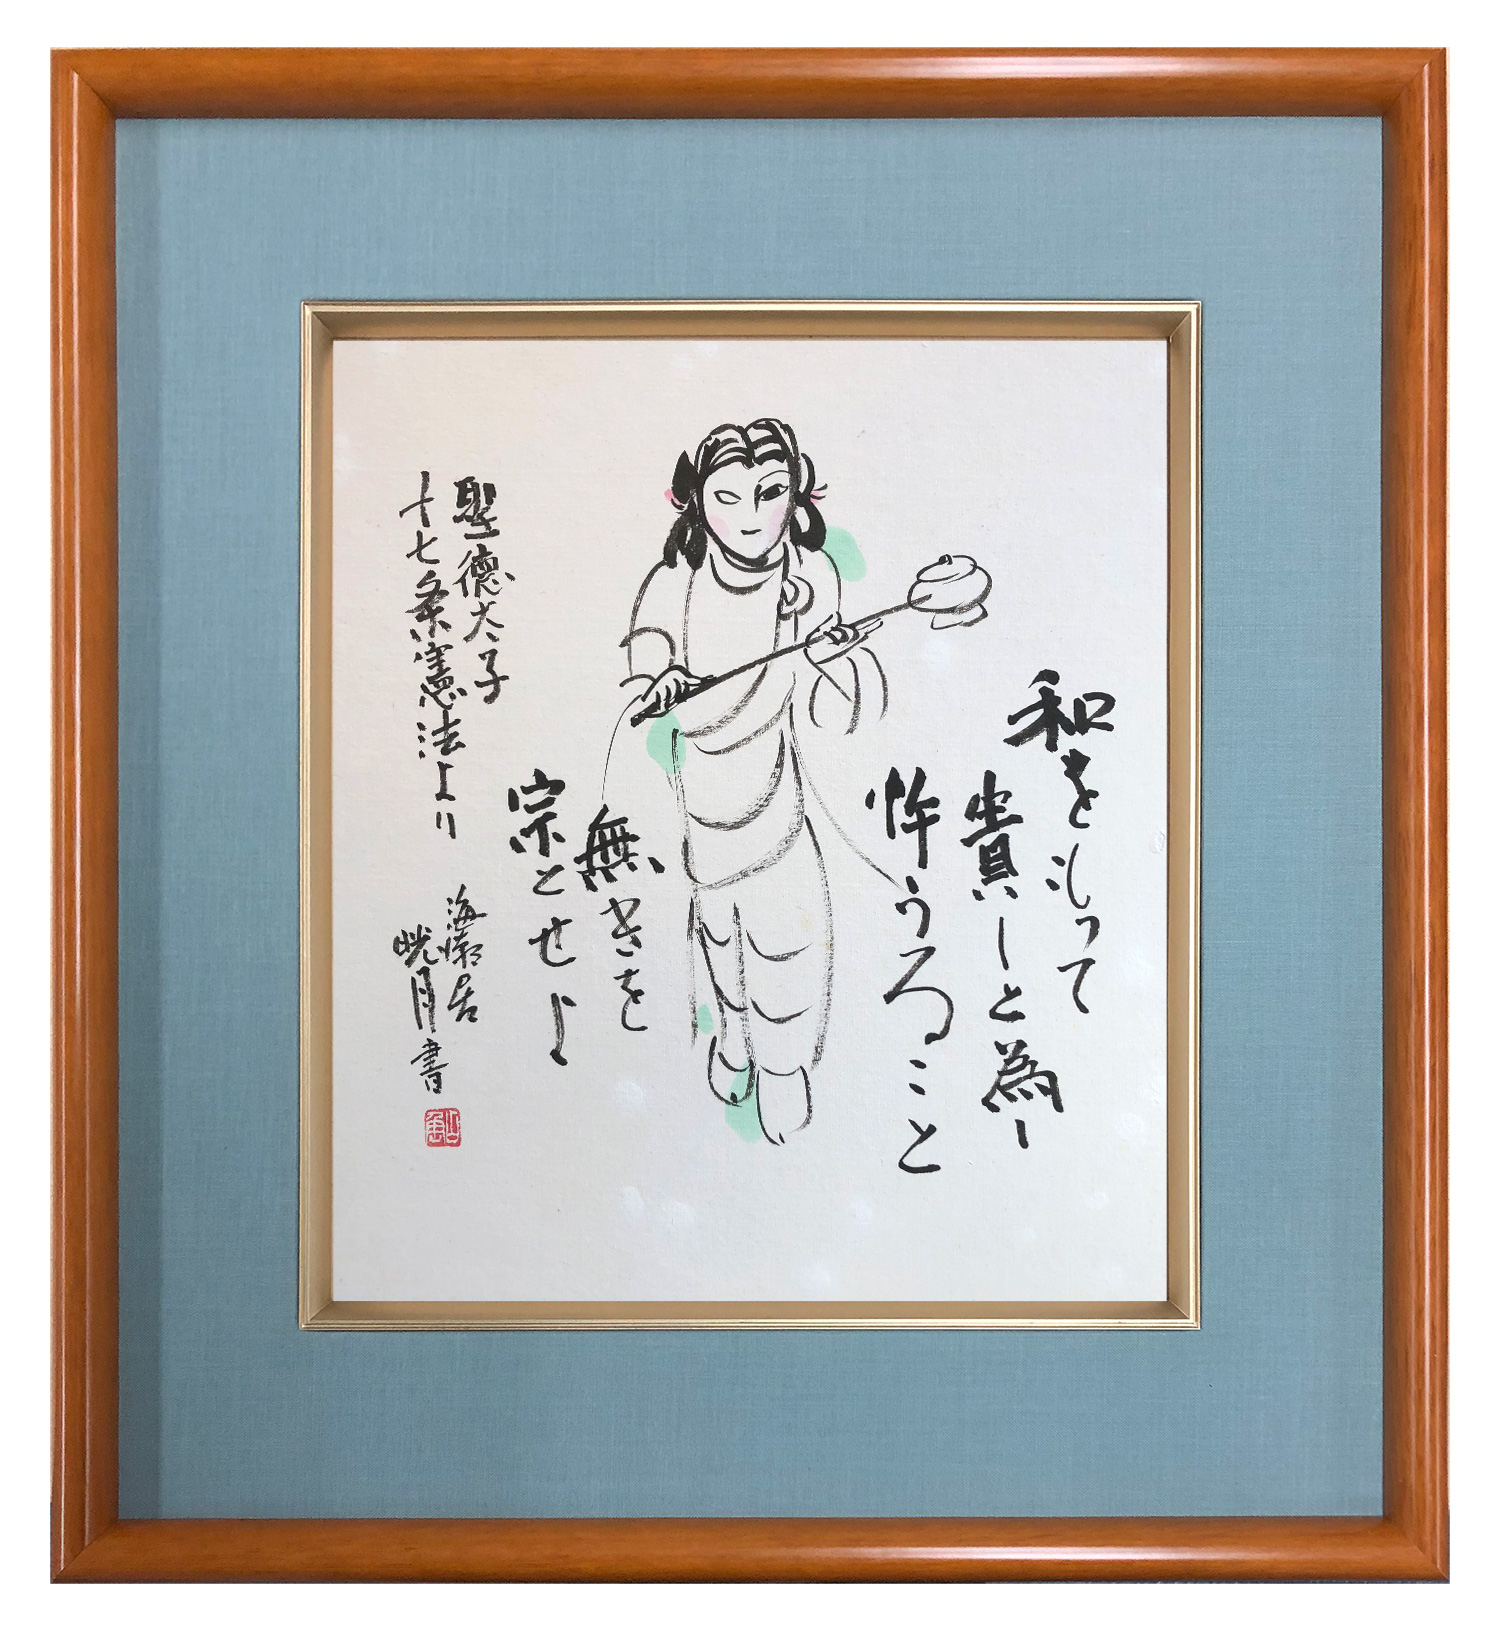 和をもって
貴しと為し
忤うること
無きを
宗とせよ
聖徳太子
十七条憲法より
海潮居
晄月書